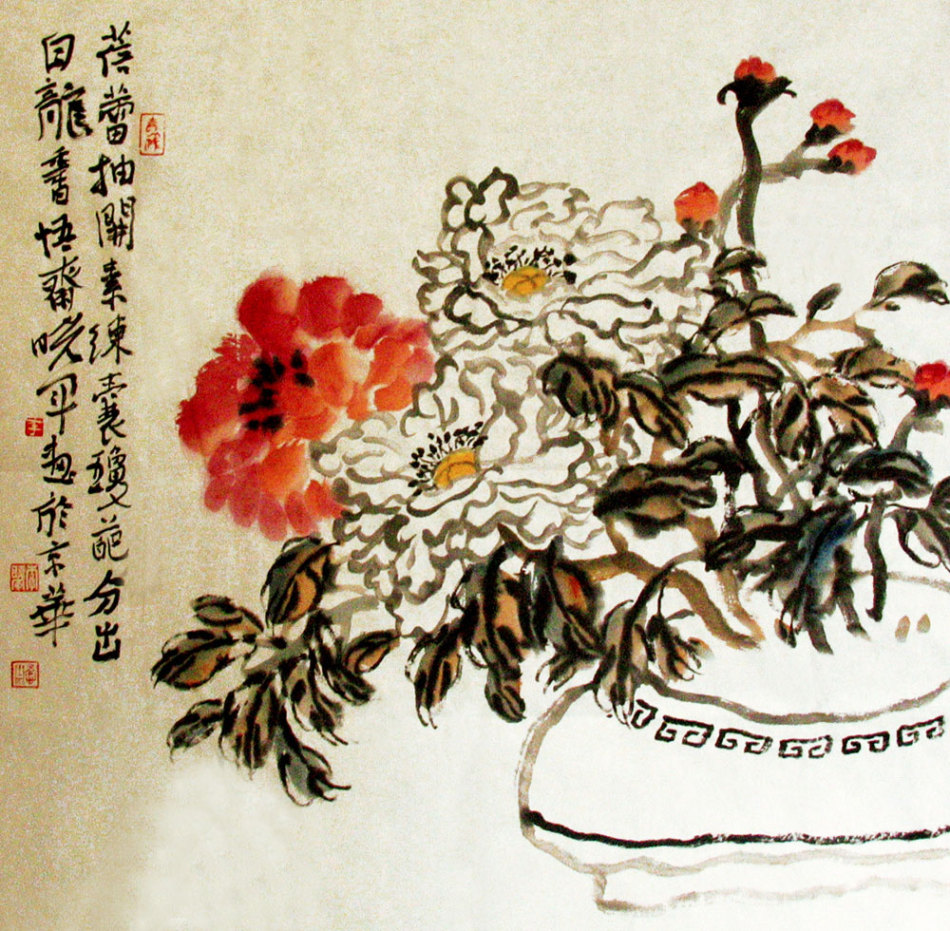 蓓蕾抽開素練囊瓊葩分出
白龍香悟齋晓军畫於京華